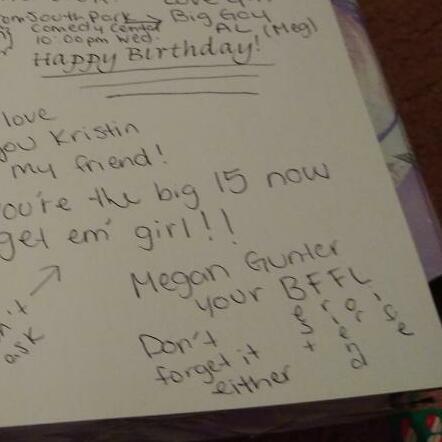 From South Park → Big Gay
Comedy Central AL, (Meg)
10:00pm Wed.
Happy Birthday!
love
you Kristin
my friend!
You're the big 15 now
get em' girl!!
Megan Gunter
your BFFL
Best
Friend
For
Life
Don't
forget it
either
ask